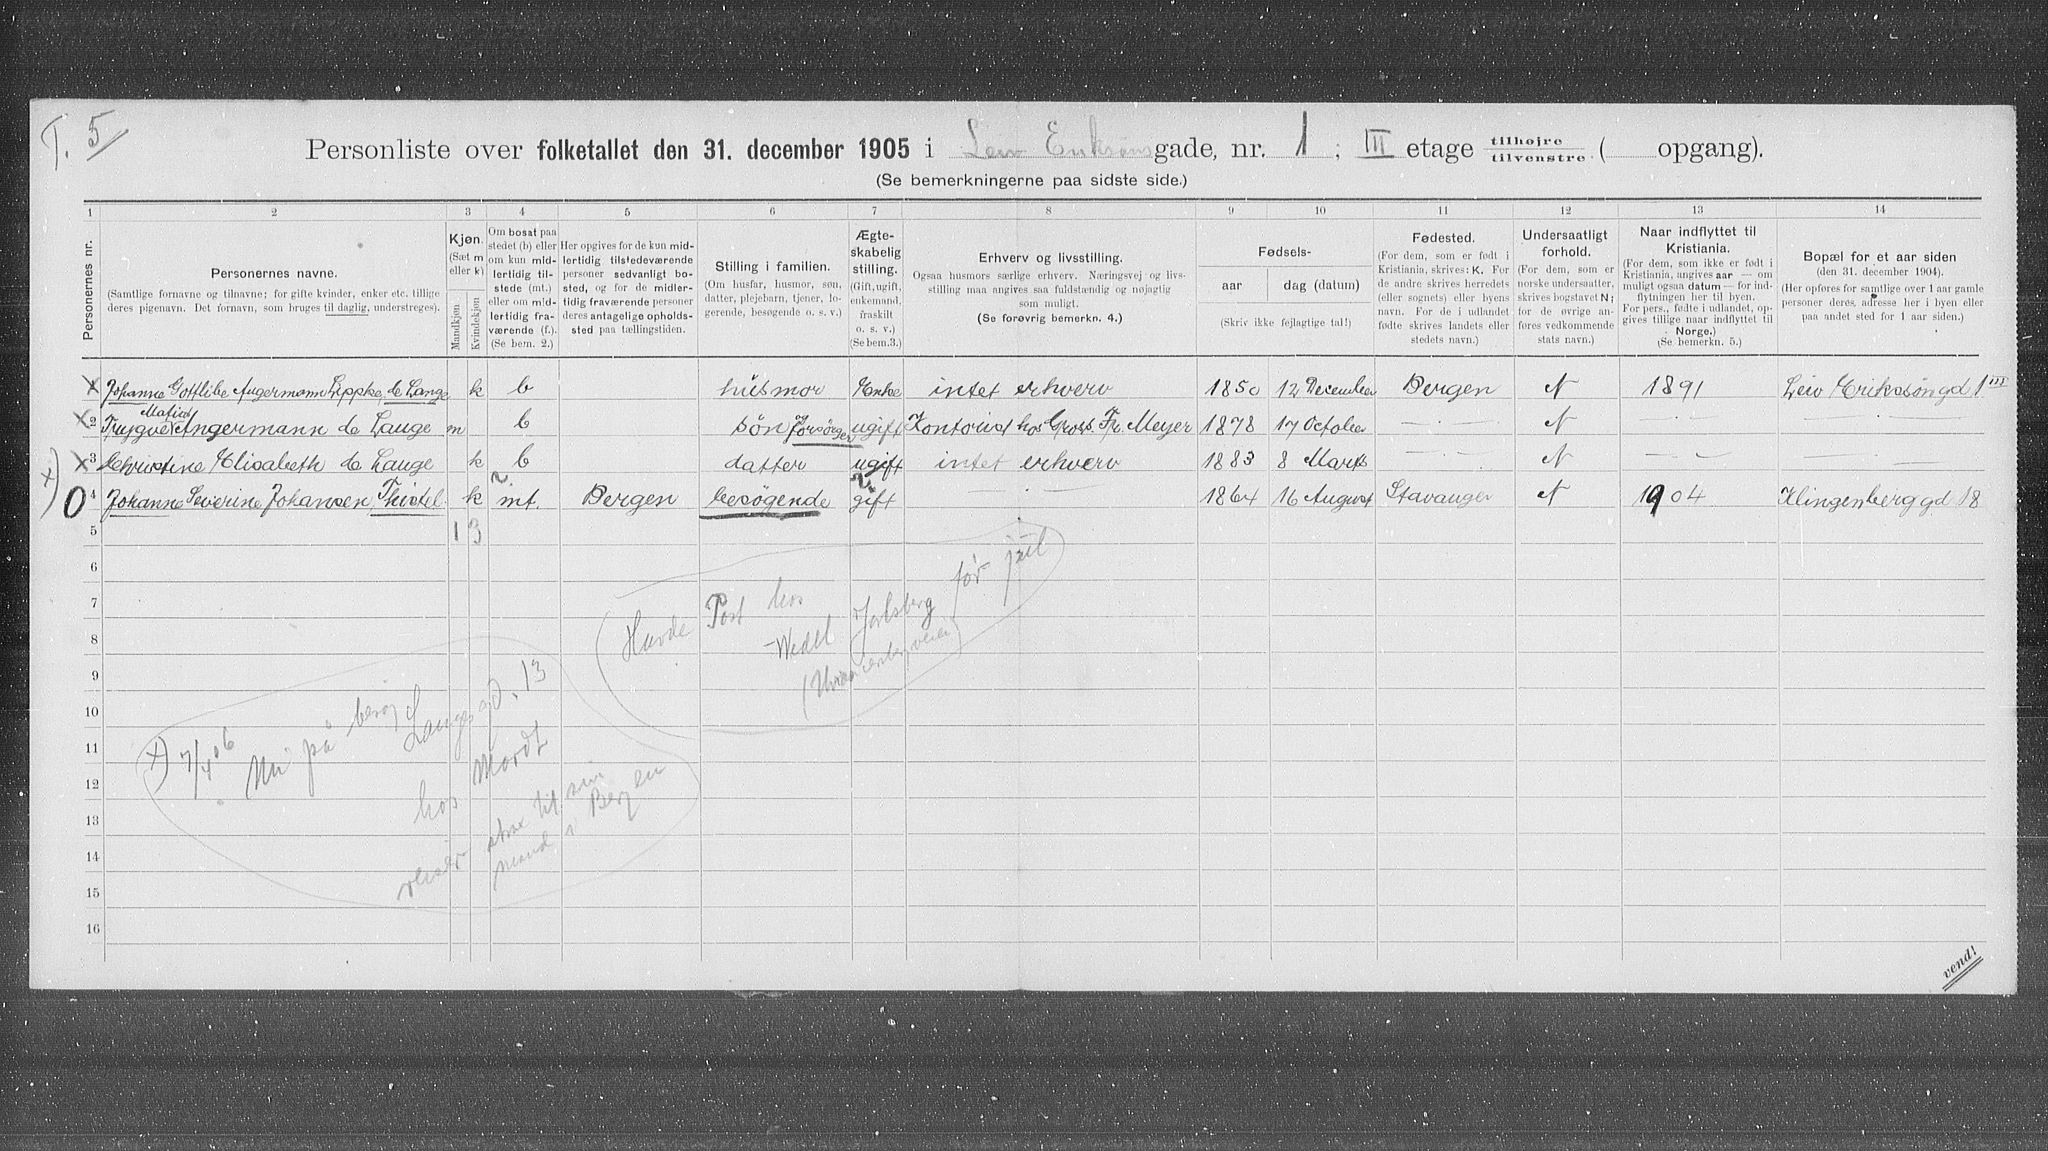 T. 5
Personliste over folketallet den 31. december 1905 i Leiv Eriksøns gade, nr. 1 ; III etage tilhøjre tilvenstre ( opgang).
(Se bemerkningerne paa sidste side.)
1 2 3 4 5 6 7 8 9 10 11 12 13 14
Personernes nr.
Personernes navne.
(Samtlige fornavne og tilnavne; for gifte kvinder, enker etc. tillige
deres pigenavn. Det fornavn, som bruges til daglig, understreges).
Kjøn.
(Sæt m
eller k)
Mandkjøn
Kvindekjøn
Om bosat paa
stedet (b) eller
om kun mid-
lertidig til-
stede (mt.)
eller om mid-
lertidig fra-
værende (f.).
(Se bem. 2.)
Her opgives for de kun mid-
lertidig tilstedeværende
personer sedvanligt bo-
sted, og for de midler-
tidig fraværende personer
deres antagelige opholds-
sted paa tællingstiden.
Stilling i familien.
(Om husfar, husmor, søn,
datter, plejebarn, tjener, lo-
gerende, besøgende o. s. v.)
Ægte-
skabelig
stilling.
(Gift, ugift,
enkemand,
fraskilt
o. s. v.)
(Se bem.3.)
Erhverv og livsstilling.
Ogsaa husmors særlige erhverv. Næringsvej og livs-
stilling maa angives saa fuldstændig og nøjagtig
som muligt.
(Se forøvrig bemerkn. 4.)
Fødsels-
aar
dag (datum)
(Skriv ikke fejlagtige tal!)
Fødested.
(For dem, som er født i
Kristiania, skrives: K. For
de andre skrives herredets
(eller sognets) eller byens
navn. For de i udlandet
fødte skrives landets eller
stedets navn.)
Undersaatligt
forhold.
(For dem, som er
norske undersaatter,
skrives bogstavet N;
for de øvrige an-
føres vedkommende
stats navn.)
Naar indflyttet til
Kristiania.
(For dem, som ikke er født i
Kristiania, angives aar — om
muligt ogsaa datum — for ind-
flytningen her til byen.
For pers., fødte i udlandet, op-
gives tillige naar indflyttet til
Norge.)
(Se bemerkn. 5.)
Bopæl for et aar siden
(den 31. december 1904).
(Her opføres for samtlige over 1 aar gamle
personer deres adresse her i byen eller
paa andet sted for 1 aar siden.)
1 Johanne Gottlibe Angermann Lippke, de Lange k b husmor Enke intet erhverv 1850 12 December Bergen N 1891 Leiv Eriksøn gd 1 III
2 Trygve Mafias Angermann de Lange m b søn forsørger ugift Kontorist hos Gross. Fr. Meyer 1878 17 October — " — N — " —
3 Christine Elisabeth de Lange k b datter ugift intet erhverv 1883 8 Marts — " — N — " —
x) 0 4 Johanne Severine Johansen Thistel k mt. Bergen besøgende gift — " — 1864 16 August Stavanger N 1904 Klingenberg gd 18
5 1 3
6
7
8
9
10
11
12
13
14
15
16
(Havde Post hos
Wedel Jarlsberg før jul
x) 7/4 06
Nu på besøg
Langes gd. 13
hos Mordt
reiser strax til sin
mand i Bergen
vend!